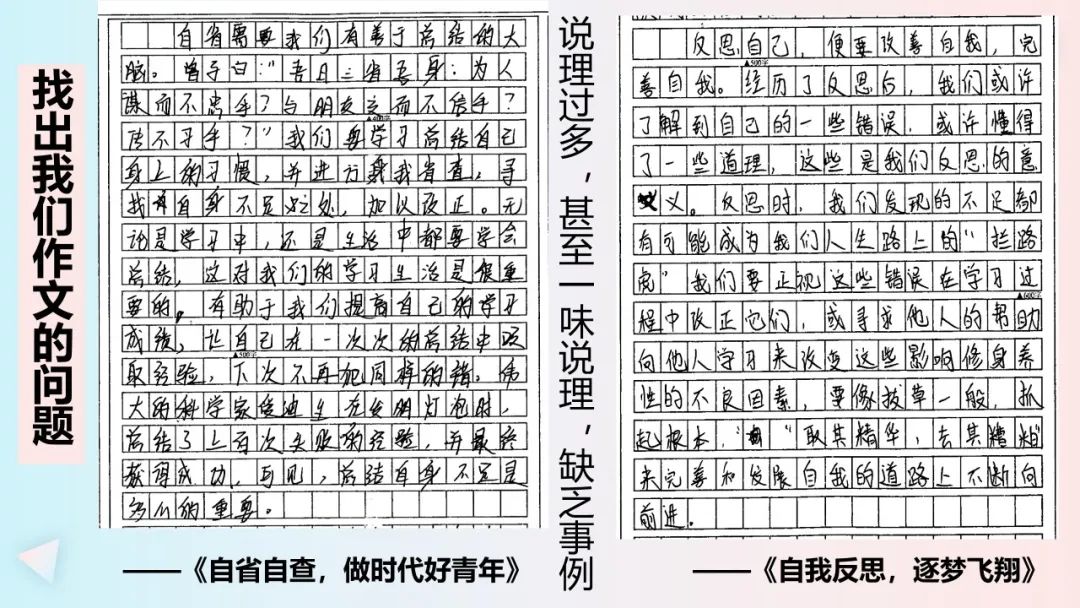 找出我们作文的问题
自省需要我们有善于总结的大
脑。曾子曰：“吾日三省吾身：为人
谋而不忠乎？与朋友交而不信乎？
传不习乎？”我们要学习总结自己
身上的习惯，并进行自我省查，寻
找自身不足之处，加以改正。无
论是学习中，还是生活中都要学会
总结，这对我们的学习生活是很重
要的。有助于我们提高自己的学习
成绩，让自己在一次次的总结中吸
取经验，下次不再犯同样的错。伟
大的科学家爱迪生在发明灯泡时，
总结了上百次失败的经验，并最终
获得成功，可见，总结自身不足是
多么的重要。
——《自省自查，做时代好青年》
说理过多，甚至一味说理，缺乏事例
反思自己，便要改善自我，完
善自我。经历了反思后，我们或许
了解到自己的一些错误，或许懂得
了一些道理，这些是我们反思的意
义。反思时，我们发现的不足都
有可能成为我们人生路上的“拦路
虎”我们要正视这些错误在学习过
程中改正它们，或寻求他人的帮助
向他人学习来改变这些影响修身养
性的不良因素，要像拔草一般，抓
起根本，“取其精华，去其糟粕”
来完善和发展自我的道路上不断向
前进。
——《自我反思，逐梦飞翔》